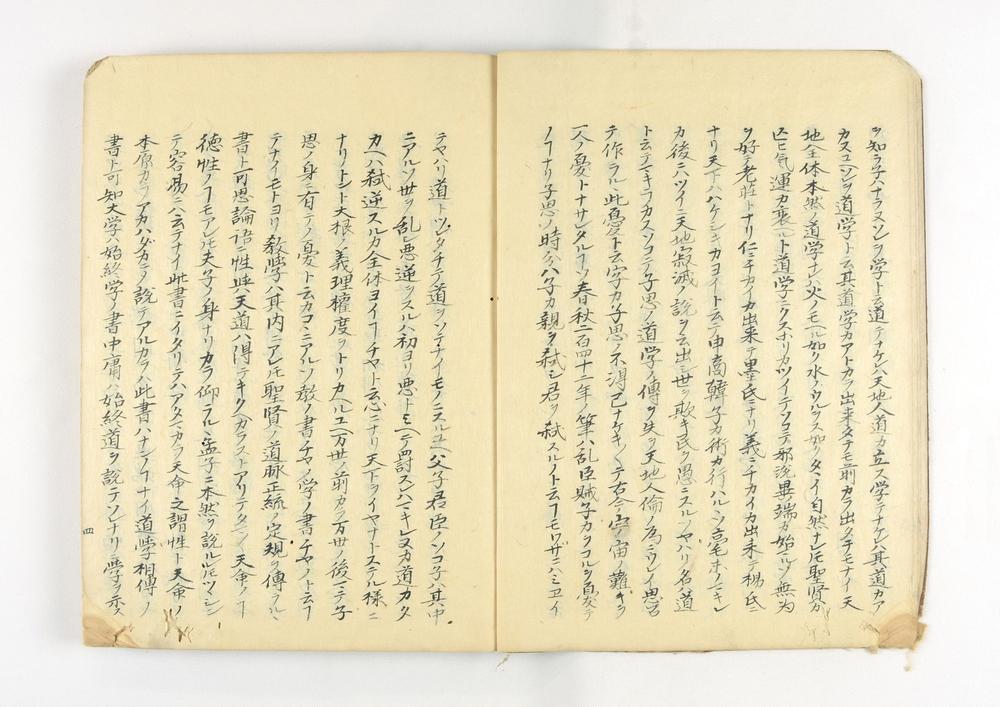 ヲ知ラ子ハナラヌソレヲ学ト云道テナケレハ天地人道カ立ス学テナケレハ其道カア
カスユヘソレヲ道学ト云其道学カアトカラ出来タテモ前カラ出タテモナイ天
地全体本然ノ道学ナレハ火ノモヘル如ク水ノウルヲス如クタイ自然ナレ𪜈聖賢カ
亡ヒ気運カ衰ヘルト道学ニクスホリカツイテソコテ邪説異端カ始ルソ無為
ヲ好テ老荘トナリ仁ニチカイカ出来テ墨氏ナリ義ニチカイカ出来テ楊氏ニ
ナリ天下ハハケシキカヨイト云テ申商韓子カ術カ行ハルソ高宅ホノニキレ
カ後ニハツイニ天地寂滅ノ説ヲ云出シ世ヲ欺キ民ヲ愚ニスルソヤハリ名ハ道
ト云テニキラカスソコテ子子思ノ道学ノ傳ヲ失ヲ天地人倫ノ為ニウレイ思召
テ作ラル此憂ト云字カ子思ノ不得已ナケキニテ古今宇宙ノ難キヲ
一人ノ憂トナサレタルソ春秋二百四十二年ノ筆ハ乱臣賊子カヲコルヲ憂テ
ノナリ子思ノ時分ハ子カ親ヲ弑シ君ヲ弑スルノト云フモワザニハミヱイ
テヤハリ道トツレタチテ道ヲソテナイモノニスルユヘ父子君臣ノソコ子ハ其中
ニアルソ世ヲ乱シ悪逆ヲスルハ初ヨリ悪トミヘテ討スレハニキレヌカ道カタ
カヘハ弑逆スルカ全体ヨイフチヤト云心ニナリ天下ヲイヤナトスル様ニ
ナリソレト大根ノ義理権度ヲトリカヘルユヘ万世ノ前カラ万世ノ後マテ子
思ノ身ニ有テノ憂ト云カコヽニアルソ教ノ書チヤノ学ノ書チヤノト云フ
テナイモトヨリ教学ハ其内ニアレ𪜈聖賢ノ道脈正統ノ定規ヲ傳ラルヽ
書ト可思論語ニ性与天道ハ得テキクヘカラストアリテタシカニ天命ノフ
徳性ノフモアレ𪜈夫子ノ身ナリカラ仰ラル孟子ニ本然ヲ説ルレ𪜈ツイシ
テ容易ニハ云テナイ此書ニイタリテハアタマカラ天命之謂性ト天命ノ
本原カラアカハダカニノ説テアルカラハ此書ハナシノフナイ道学相傳ノ
書ト可知大学ハ始終学ノ書中庸ハ始終道ヲ説テソレナリニ学ヲ示ス
四